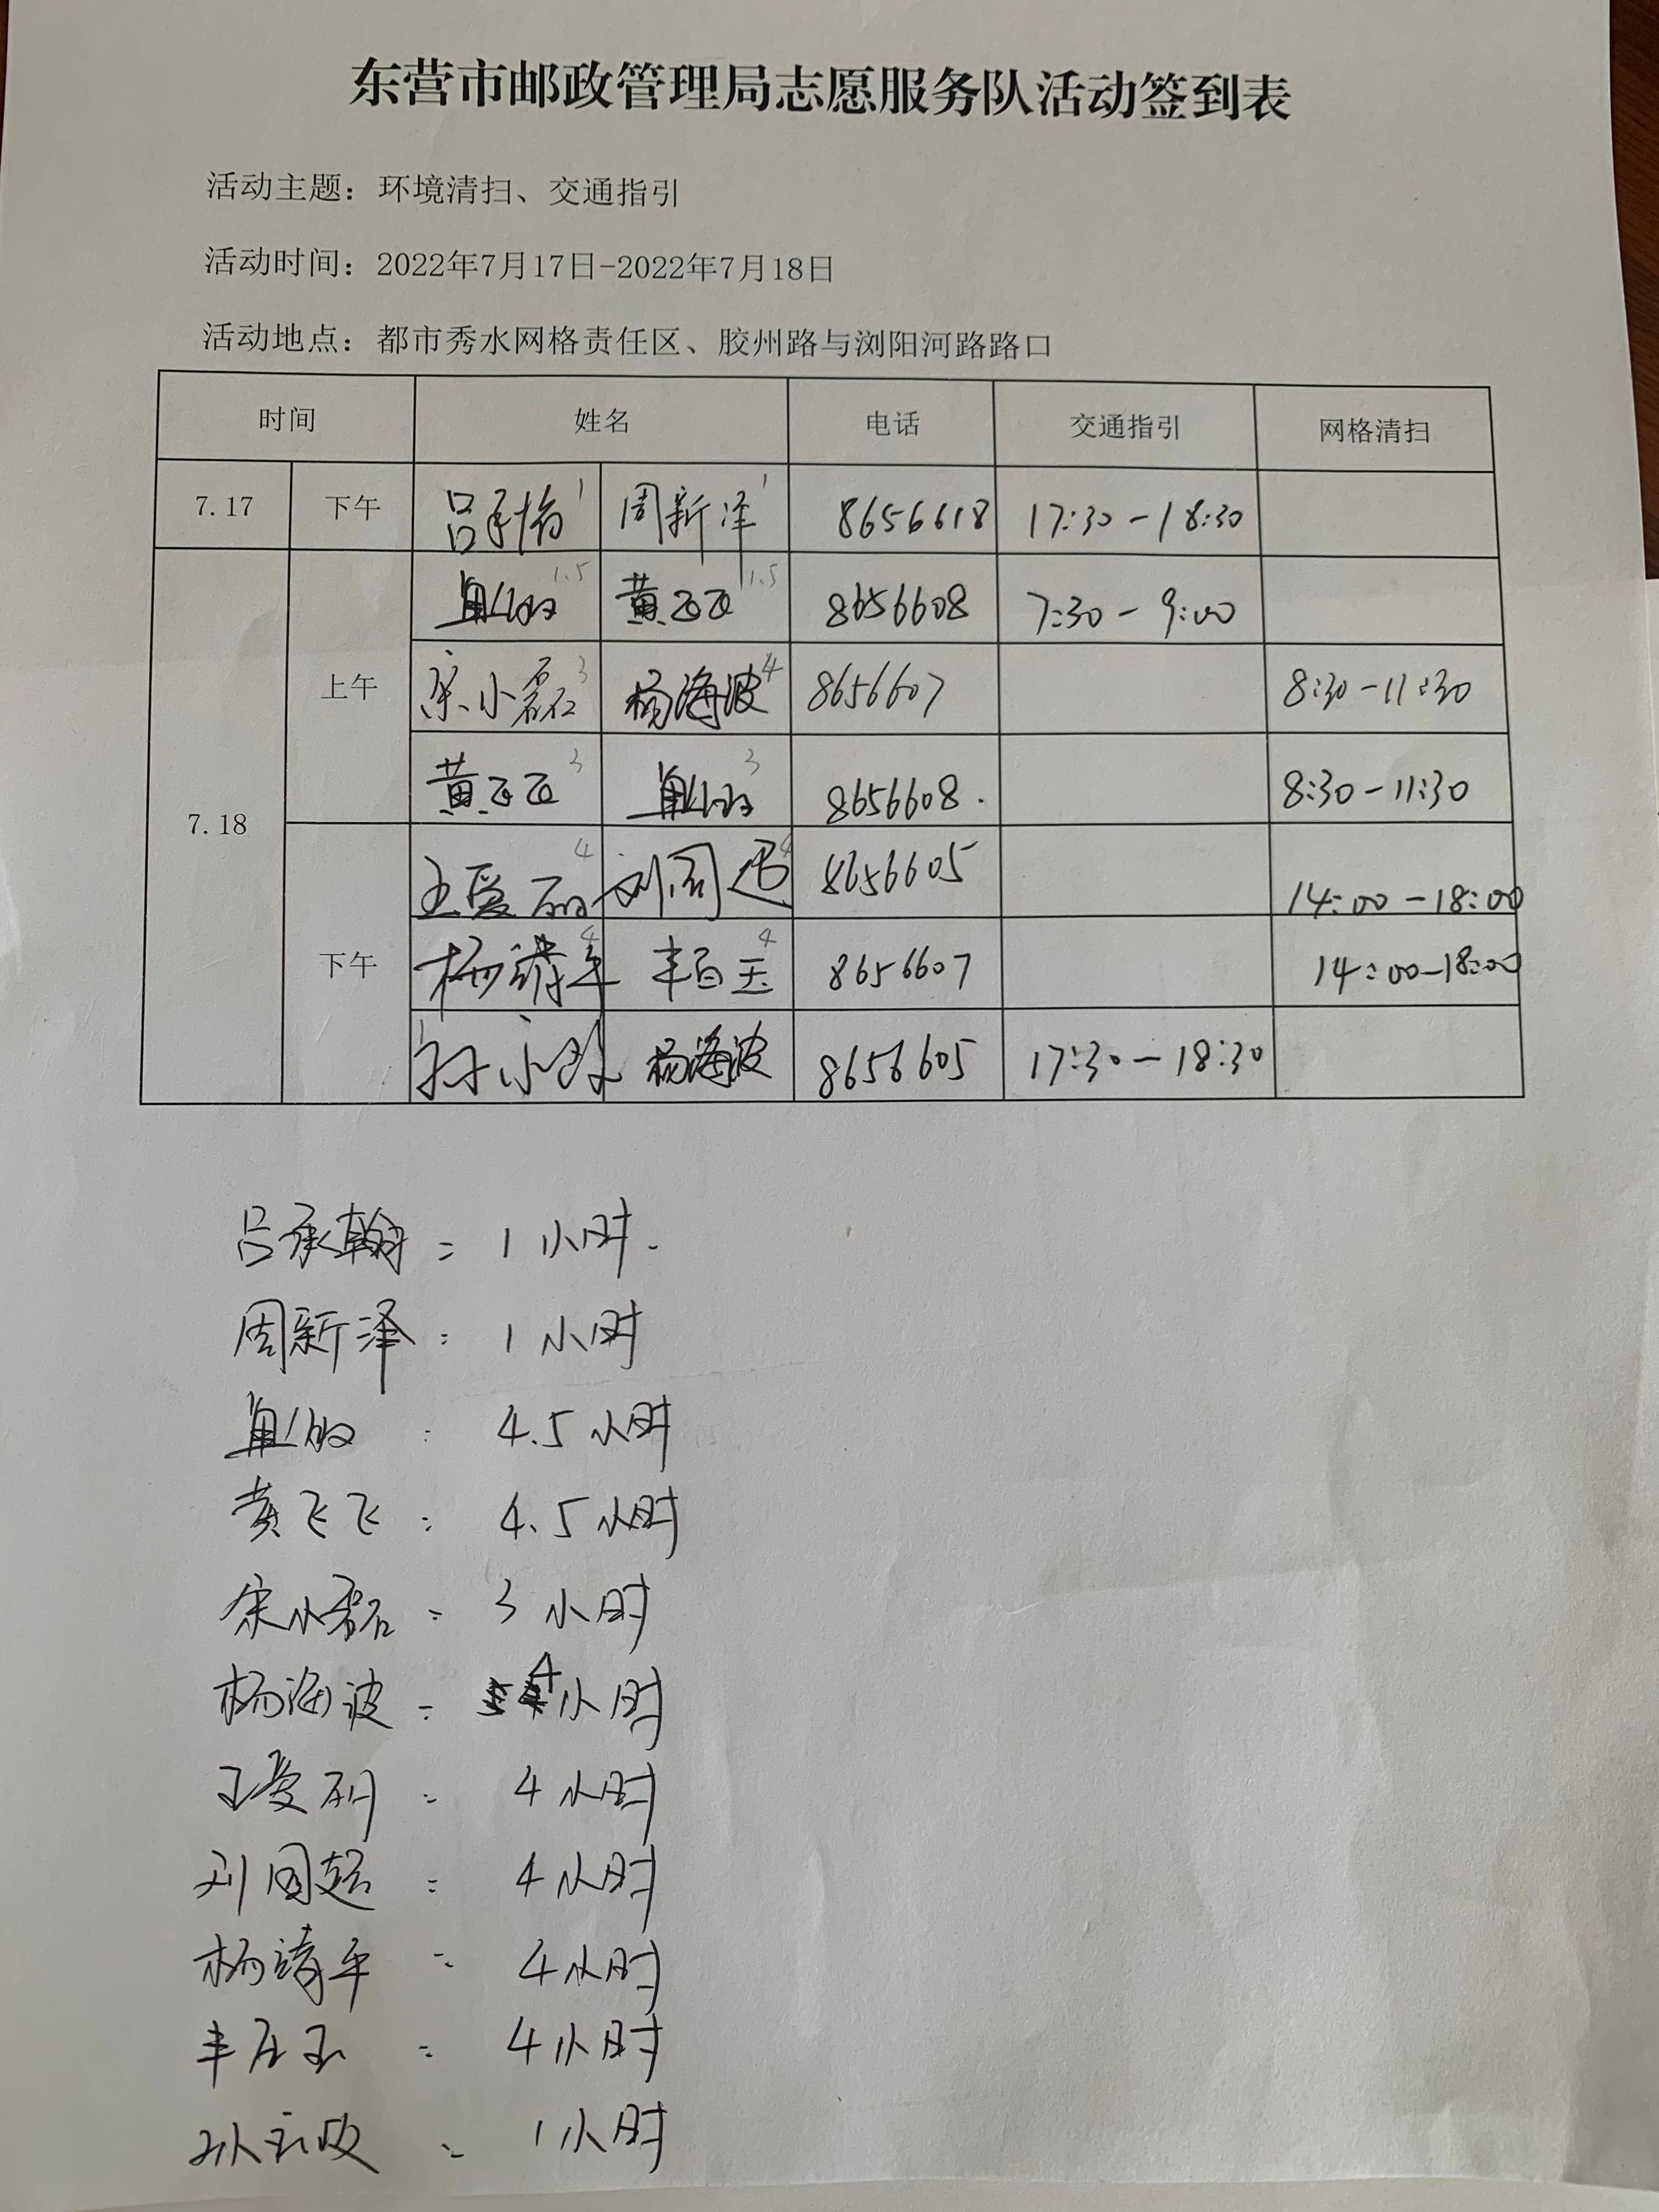 东营市邮政管理局志愿服务队活动签到表
活动主题：环境清扫、交通指引
活动时间：2022年7月17日-2022年7月18日
活动地点：都市秀水网格责任区、胶州路与浏阳河路路口
时间 姓名 电话 交通指引 网格清扫
7.17 下午 1 周新泽 1 8656618 17:30-18:30
1.5 黄飞飞 1.5 8656608 7:30-9:00
上午 宋小磊 3 杨海波 4 8656607 8:30-11:30
黄飞飞 3 3 8656608. 8:30-11:30
7.18
4 刘同超 4 8656605 14:00-18:00
下午 杨靖年 4 丰百玉 4 8656607 14:00-18:00
杨海波 8656605 17:30-18:30
吕承翰: 1小时.
周新泽: 1小时
: 4.5小时
黄飞飞: 4.5小时
宋小磊: 3小时
杨海波: 4小时
: 4小时
刘同超: 4小时
: 4小时
: 4小时
: 1小时